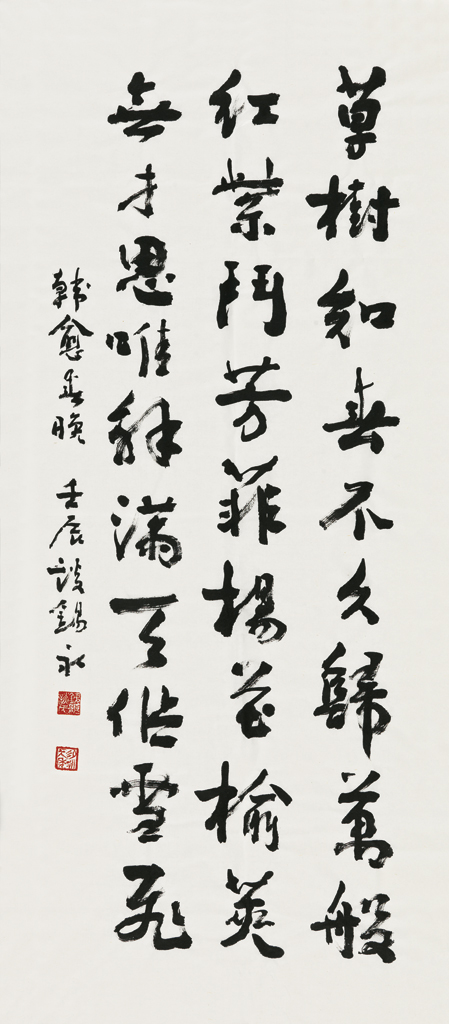 草樹知春不久歸萬般
紅紫鬥芳菲楊花榆莢
無才思唯解滿天作雪飛
韓愈春晚 壬辰談錫永